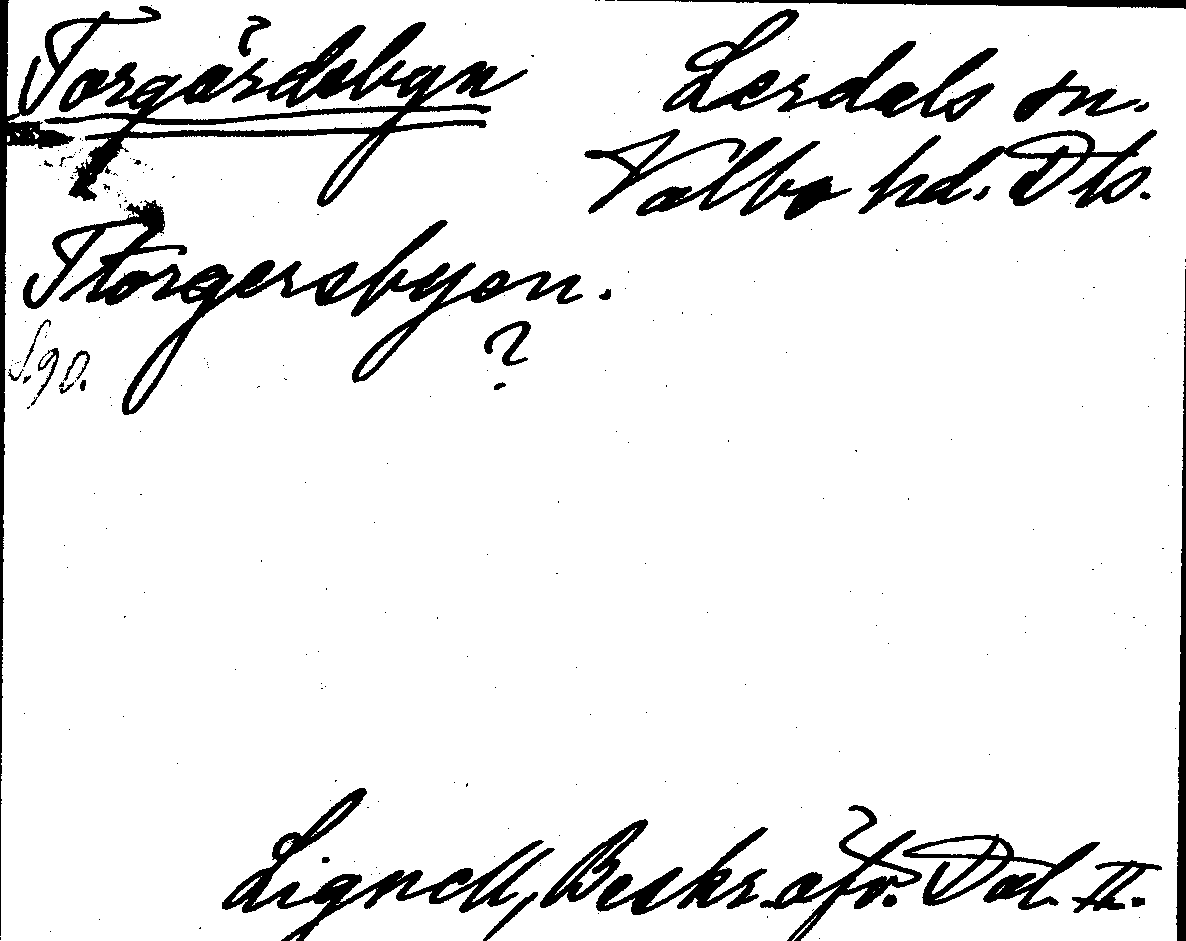 Torgärdsbyn Lerdals sn.
Valbo hd. Dls.
Ttorgersbyen.
?
S.90.
Lignell, Beskr. öfv. Dal. II.